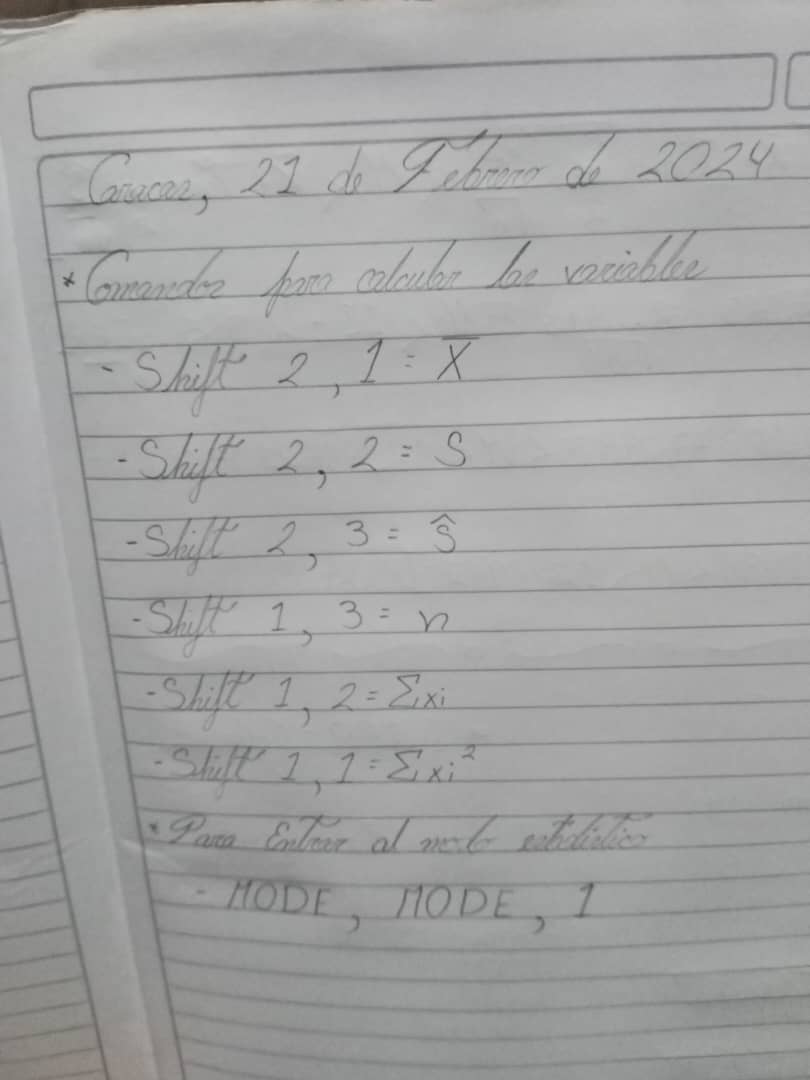 Caracas, 21 de Febrero de 2024
* Comandos para calcular las variables
- Shift 2, 1 = X̅
- Shift 2, 2 = S
- Shift 2, 3 = Ŝ
- Shift 1, 3 = n
- Shift 1, 2 = Σxi
- Shift 1, 1 = Σxi²
* Para Entrar al modo estadistico
- MODE, MODE, 1